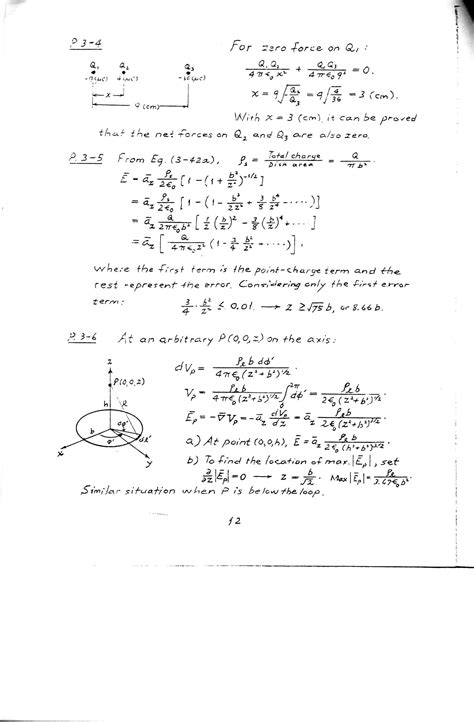 P. 3-4
For zero force on Q₁ :
Q₁ Q₂ Q₃
-9(μC) 4(μC) -36(μC)
x
9 (cm)
Q₁Q₂/4πϵ₀x² + Q₁Q₃/4πϵ₀9² = 0.
x = 9√(-Q₂/Q₃) = 9√(4/36) = 3 (cm).
With x = 3 (cm), it can be proved
that the net forces on Q₂ and Q₃ are also zero.
P. 3-5 From Eq. (3-42a), ρₛ = Total charge/Disk area = Q/πb².
Ē = āz ρₛ/2ϵ₀ [1 - (1 + b²/z²)^(-1/2)]
= āz ρₛ/2ϵ₀ [1 - (1 - b²/2z² + 3/8 b⁴/z⁴ - ····)]
= āz Q/2πϵ₀b² [1/2 (b/z)² - 3/8 (b/z)⁴ + ...]
= āz [Q/4πϵ₀z² (1 - 3/4 b²/z² + ·····)],
where the first term is the point-charge term and the
rest represent the error. Considering only the first error
term: 3/4 · b²/z² ≤ 0.01. → z ≥ √75 b, or 8.66 b.
P. 3-6 At an arbitrary P(0,0,z) on the axis:
z
P(0,0,z)
h
R
b
φ'
dφ'
dl'
x
y
dVₚ = ρℓ b dφ'/4πϵ₀(z²+b²)^(1/2).
Vₚ = ρℓ b/4πϵ₀(z²+b²)^(1/2) ∫₀^2π dφ' = ρℓ b/2ϵ₀(z²+b²)^(1/2).
Ēₚ = -∇̄Vₚ = -āz dVₚ/dz = āz ρℓ b
a) At point (0,0,h), Ē = āz ρℓ b
b) To find the location of max. |Ēₚ|, set
∂/∂z |Ēₚ| = 0 → z = b/√2. Max|Ēₚ| =
Similar situation when P is below the loop.
12